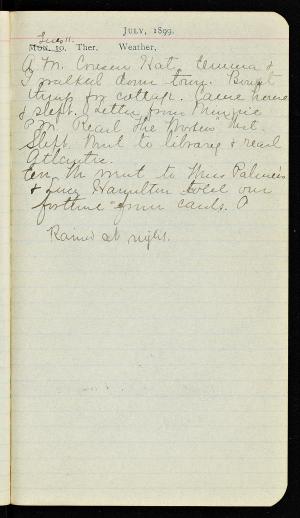 July, 1899.
Tues 11.
Mon. 10. Ther. Weather,
A.M. Hot. Emma &
I walked down town. Bought
things for cottage. Came home
& slept. Letter from Minnie
P.M. Read The
Slept. Went to library & read
Atlantic.
Ev. We went to Miss Palmer's
& Lucy Hamilton told our
fortune from cards. A
Rained at night.